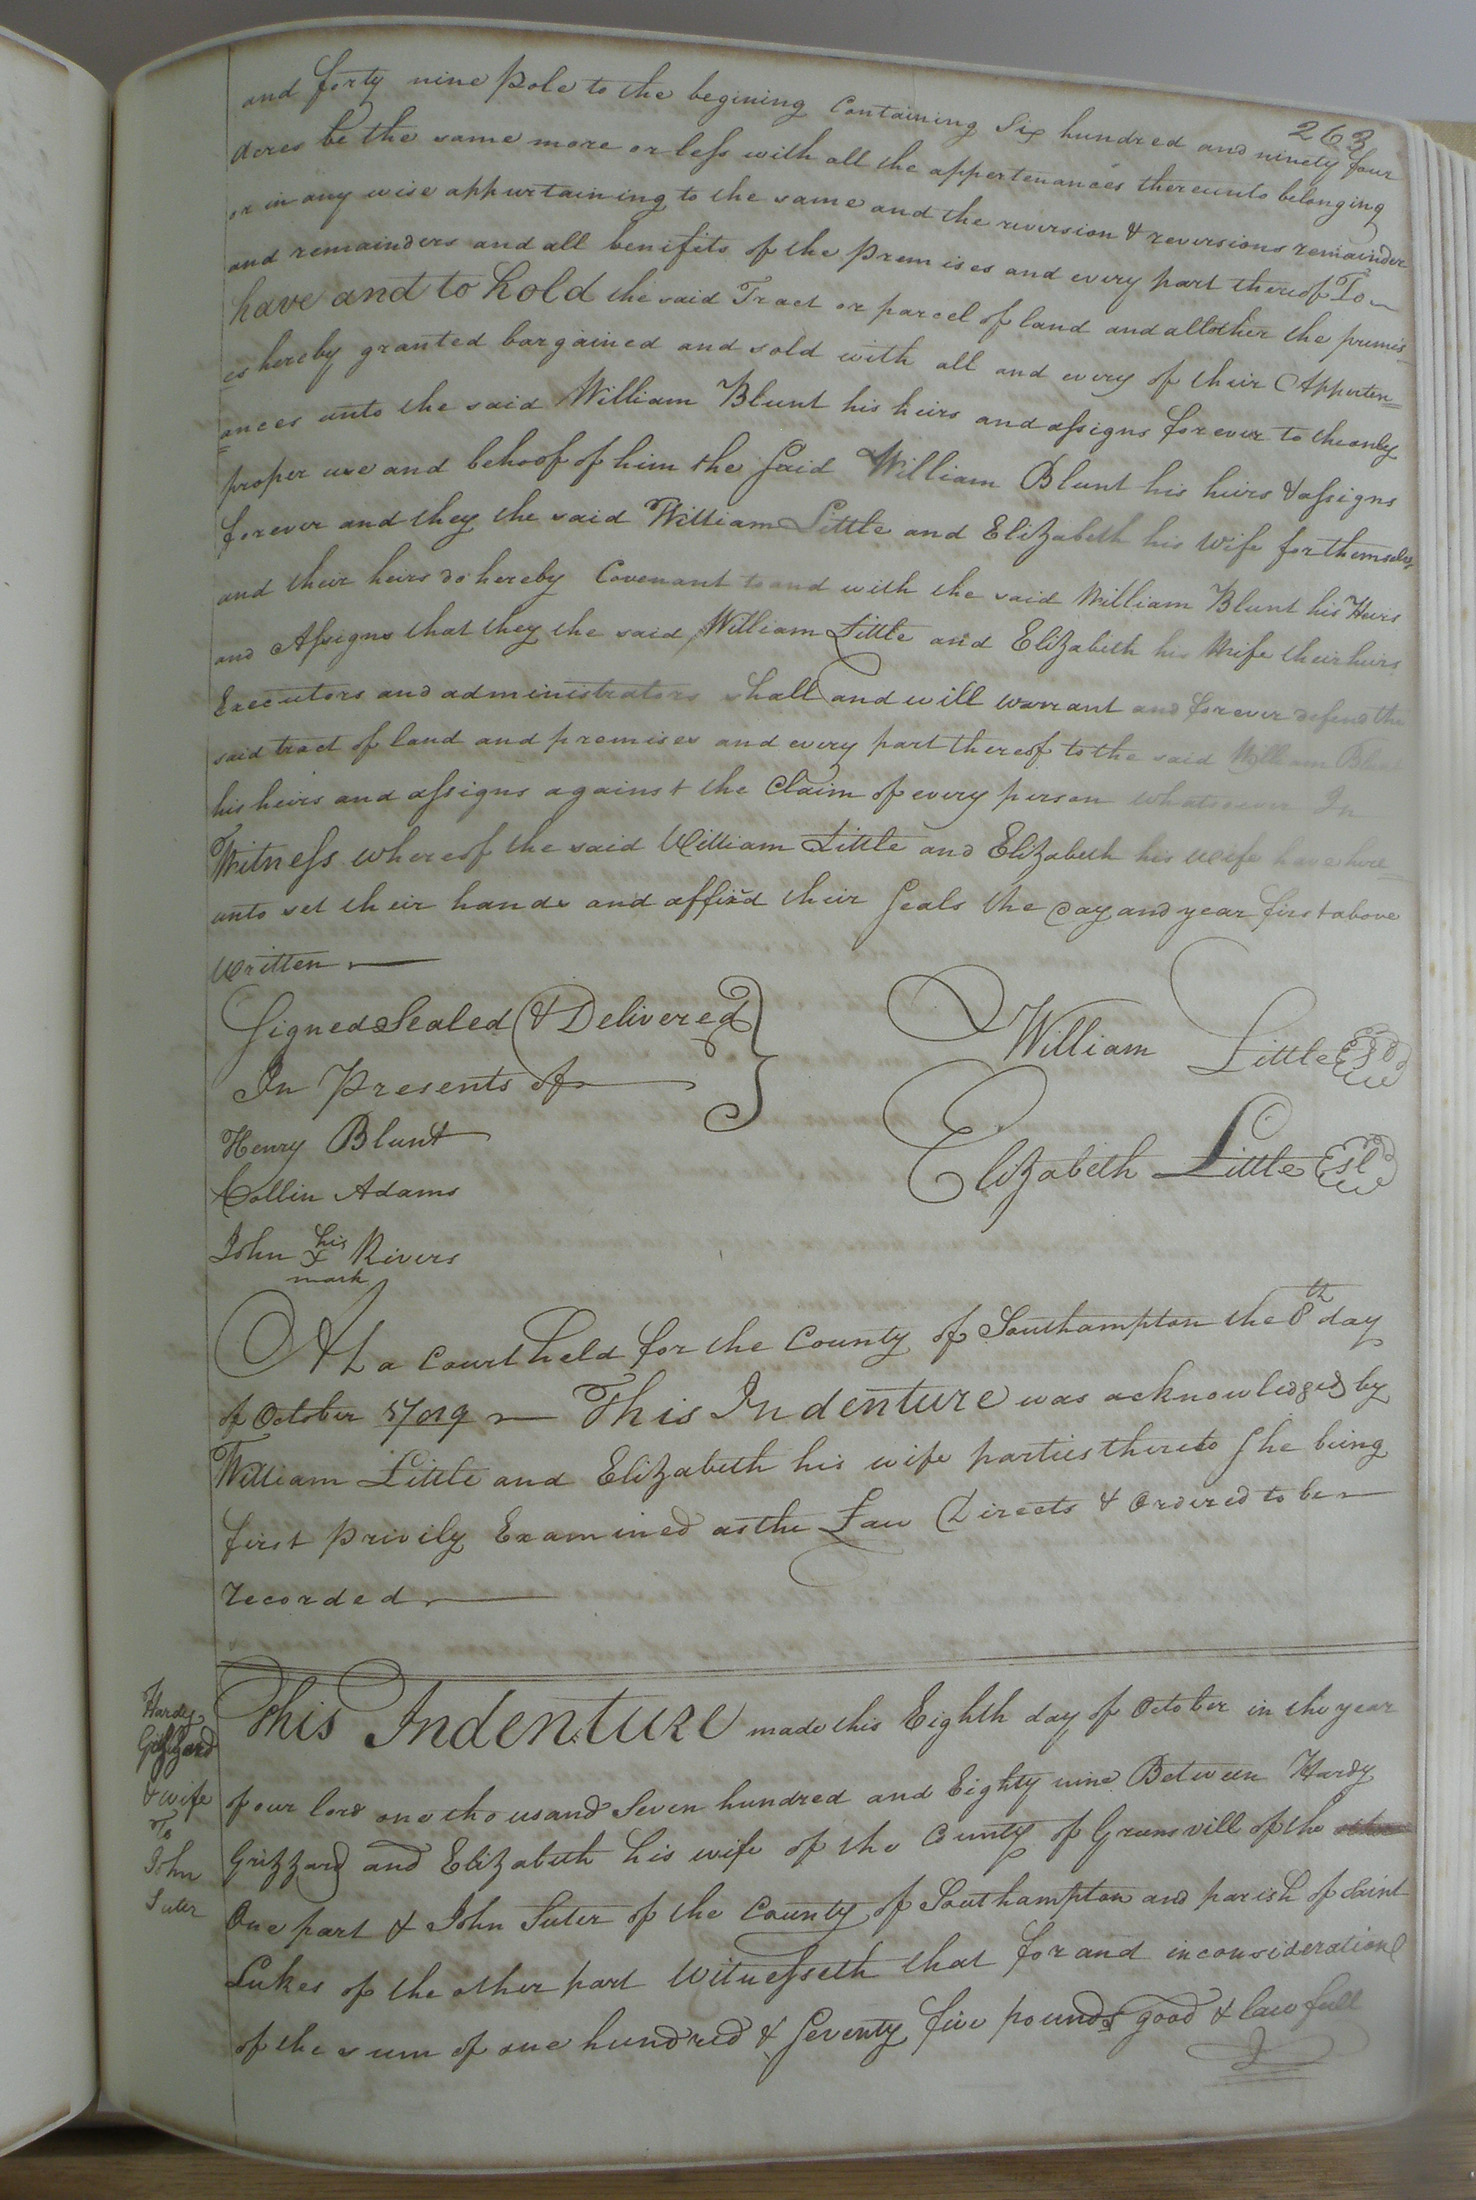 263
and forty nine pole to the begining Containing Six hundred and ninety four
Acres be the same more or less with all the appertenances thereunto belonging
or in any wise appurtaining to the same and the reversion & reversions remainder
and remainders and all benifits of the premises and every part thereof To
have and to hold the said Tract or parcel of land and all other the premis-
es hereby granted bargained and sold with all and every of their Apperten=
ances unto the said William Blunt his heirs and assigns forever to the only
proper use and behoof of him the said William Blunt his heirs & assigns
forever and they the said William Little and Elizabeth his Wife for themselves
and their heirs do hereby Covenant to and with the said William Blunt his Heirs
and Assigns that they the said William Little and Elizabeth his Wife their heirs
Executors and administrators shall and will warrant and forever defend the
said tract of land and premises and every part thereof to the said William Blunt
his heirs and assigns against the Claim of every person whatsoever In
Witness whereof the said William Little and Elizabeth his wife have here=
unto set their hands and affixd their Seals the day and year first above
Written
Signed Sealed & Delivered
In Presents of
William Little
Elizabeth Little
Henry Blunt
Collin Adams
John his x mark Rivers
At a Court held for the County of Southampton the 8th day
of October This Indenture was acknowledged by
William Little and Elizabeth his wife parties thereto She being
first privily Examined as the Law Directs & Ordered to be
recorded
Hardy
Grizzard
& wife
To
John
Suter
This Indenture made this Eighth day of October in the year
of our lord one thousand Seven hundred and Eighty nine Between Hardy
Grizzard and Elizabeth his wife of the County of Greensvill of the
One part & John Suter of the County of Southampton and parish of Saint
Lukes of the other part Witnesseth that for and in consideration
of the sum of one hundred & Seventy five pounds good & lawfull